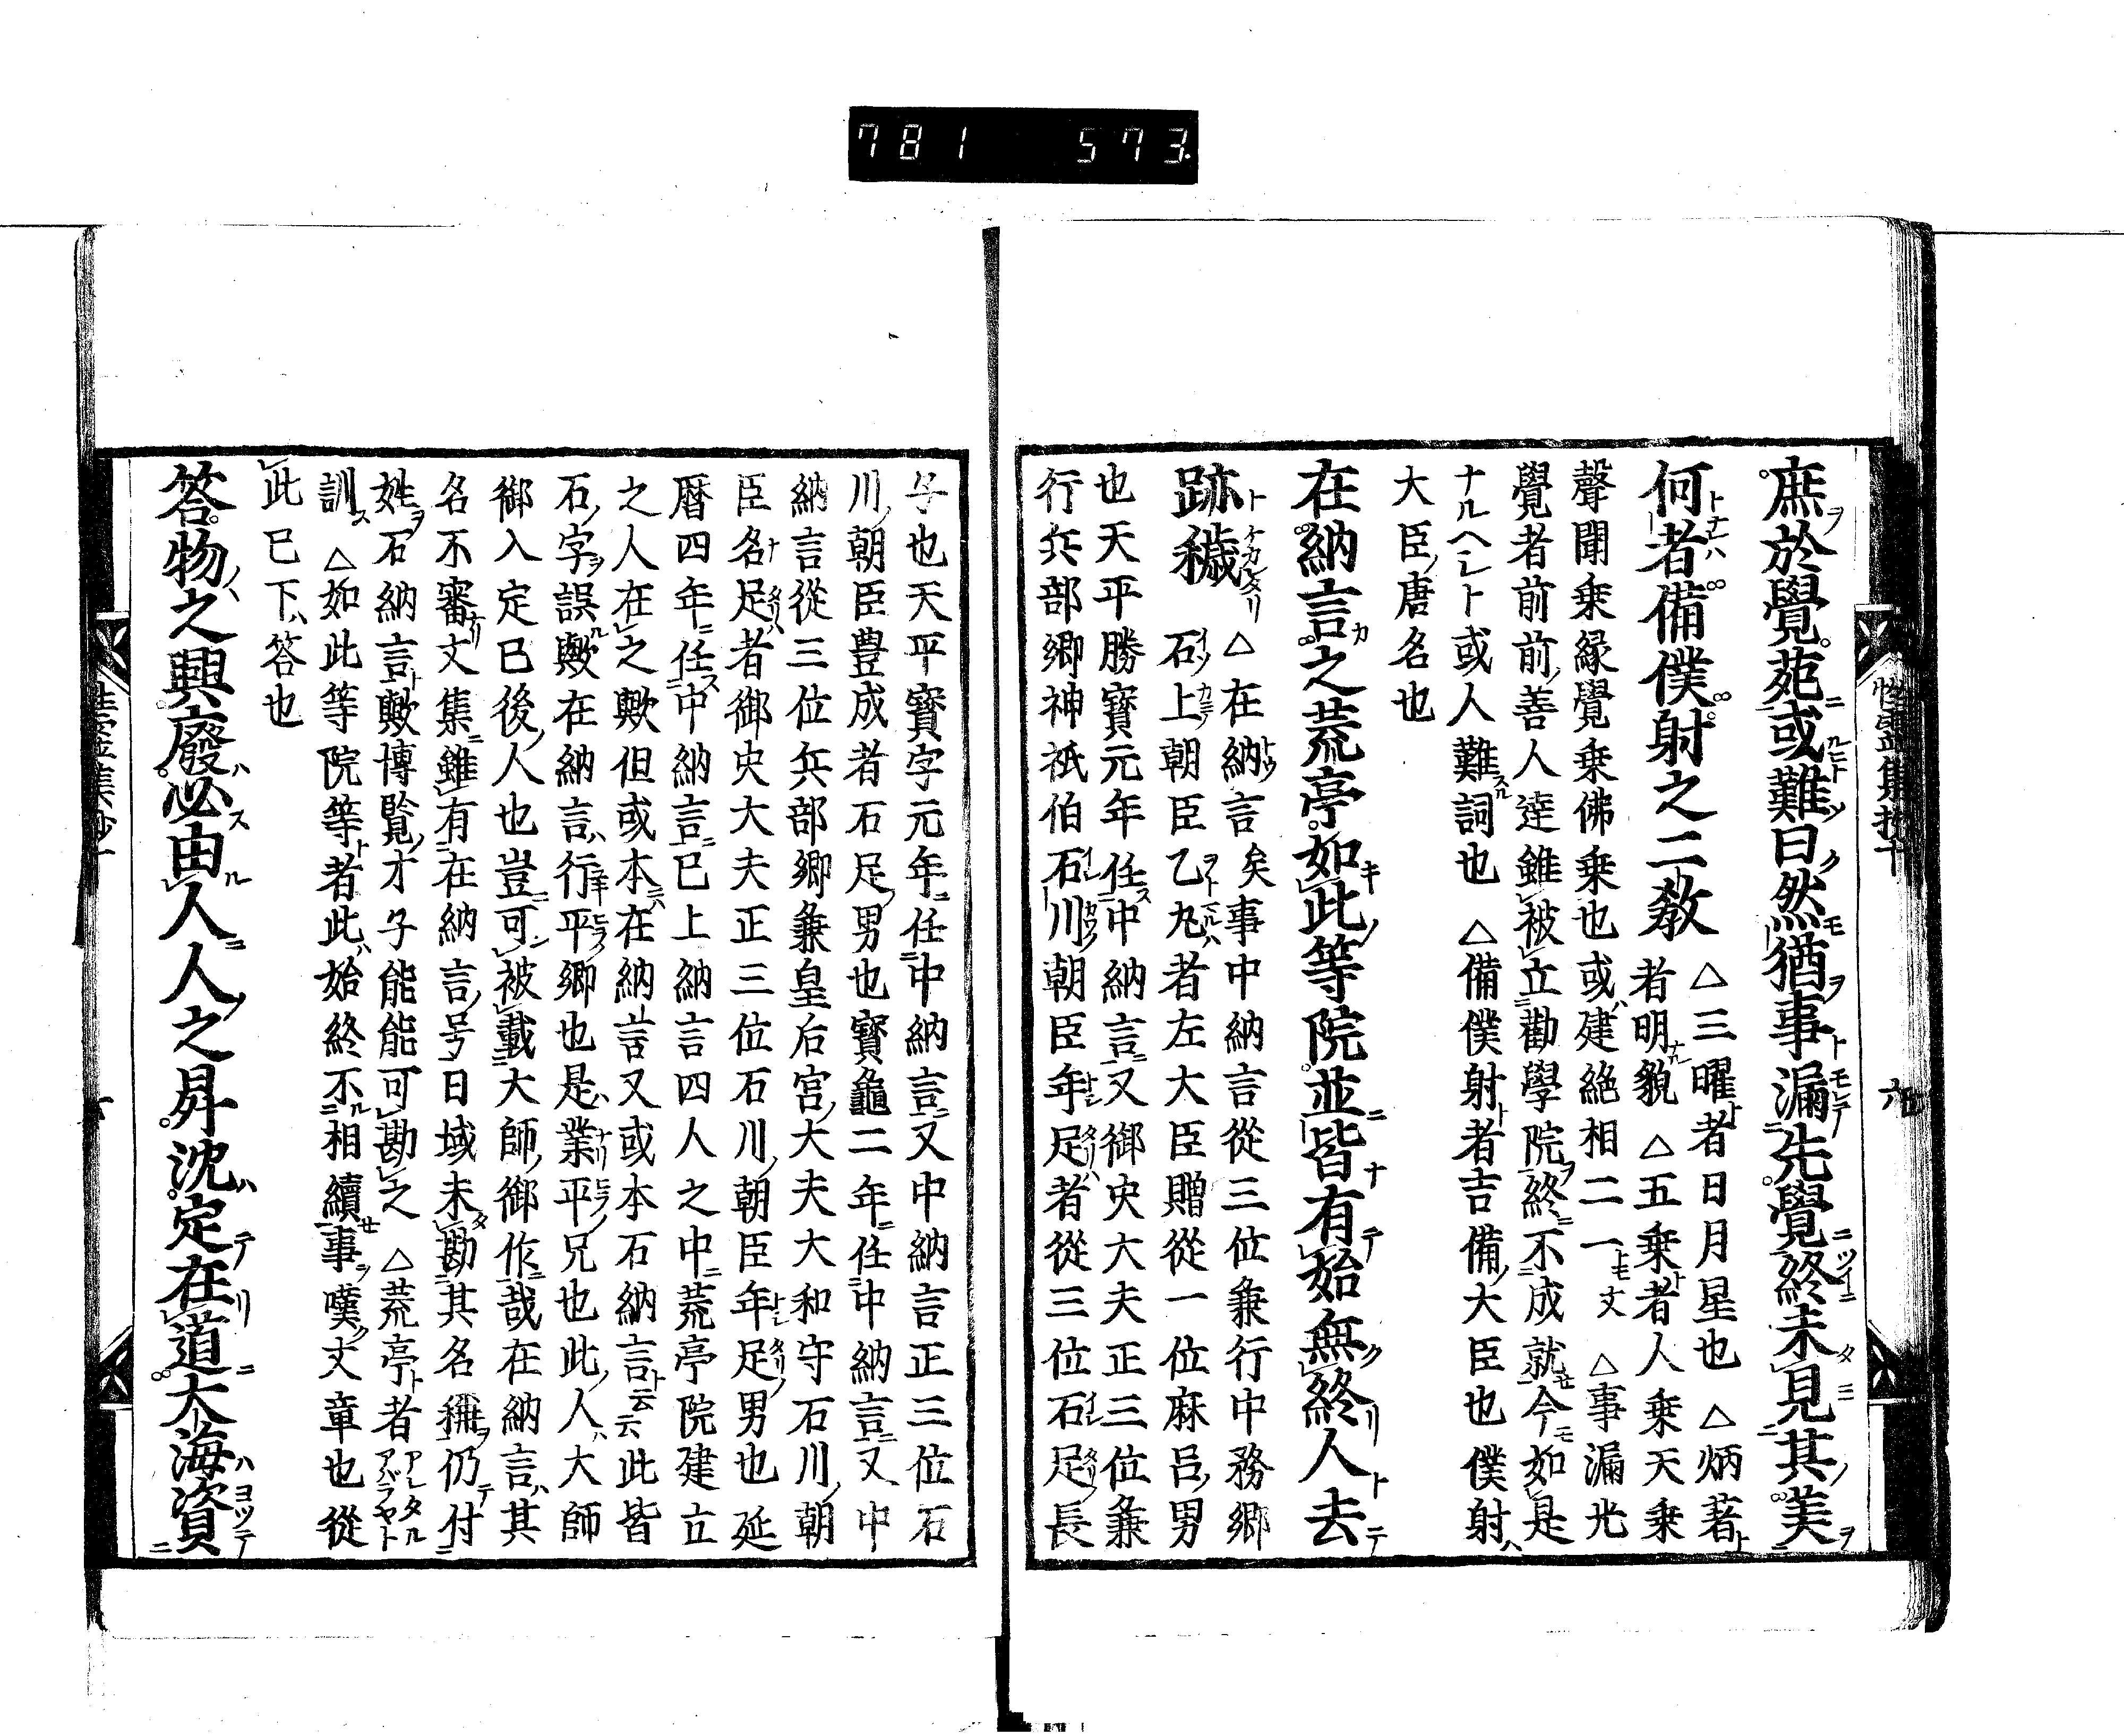 781 573
庶於覺苑或難曰然猶事漏先覺終未見其美
何者備僕射之二教 △三曜者日月星也 △炳著
者明貌 △五乘者人乘天乘
聲聞乘縁覺乘佛乘也或建絶相二一𠀋 △事漏先
覺者前前善人達雖被立勸學院終不成就今如是
ナルヘシト或人難詞也 △備僕射者吉備大臣也僕射
大臣唐名也
在納言之荒亭如此等院並皆有始無終人去
跡穢 △在納言矣事中納言從三位兼行中務卿
石上朝臣乙丸者左大臣贈從一位麻呂男
也天平勝寳元年任中納言又御史大夫正三位兼
行兵部卿神祇伯石川朝臣年足者從三位石足長
子也天平寳字元年任中納言又中納言正三位石
川朝臣豊成者石足男也寳龜二年任中納言又中
納言從三位兵部卿兼皇后宮大夫大和守石川朝
臣名足者御史大夫正三位石川朝臣年足男也延
暦四年任中納言已上納言四人之中荒亭院建立
之人在之歟但或本在納言又或本石納言ト云云此皆
石字誤歟在納言行平卿也是業平兄也此人大師
御入定已後人也豈可被載大師御作哉在納言其
名不審𠀋集雖有在納言号日域未勘其名稱仍付
姓石納言歟博覧才子能能可勘之 △荒亭者アレタルアバラヤト
訓ス △如此等院等者此始終不相續事嘆𠀋章也從
此已下答也
答物之興廢必由人人之昇沈定在道大海資